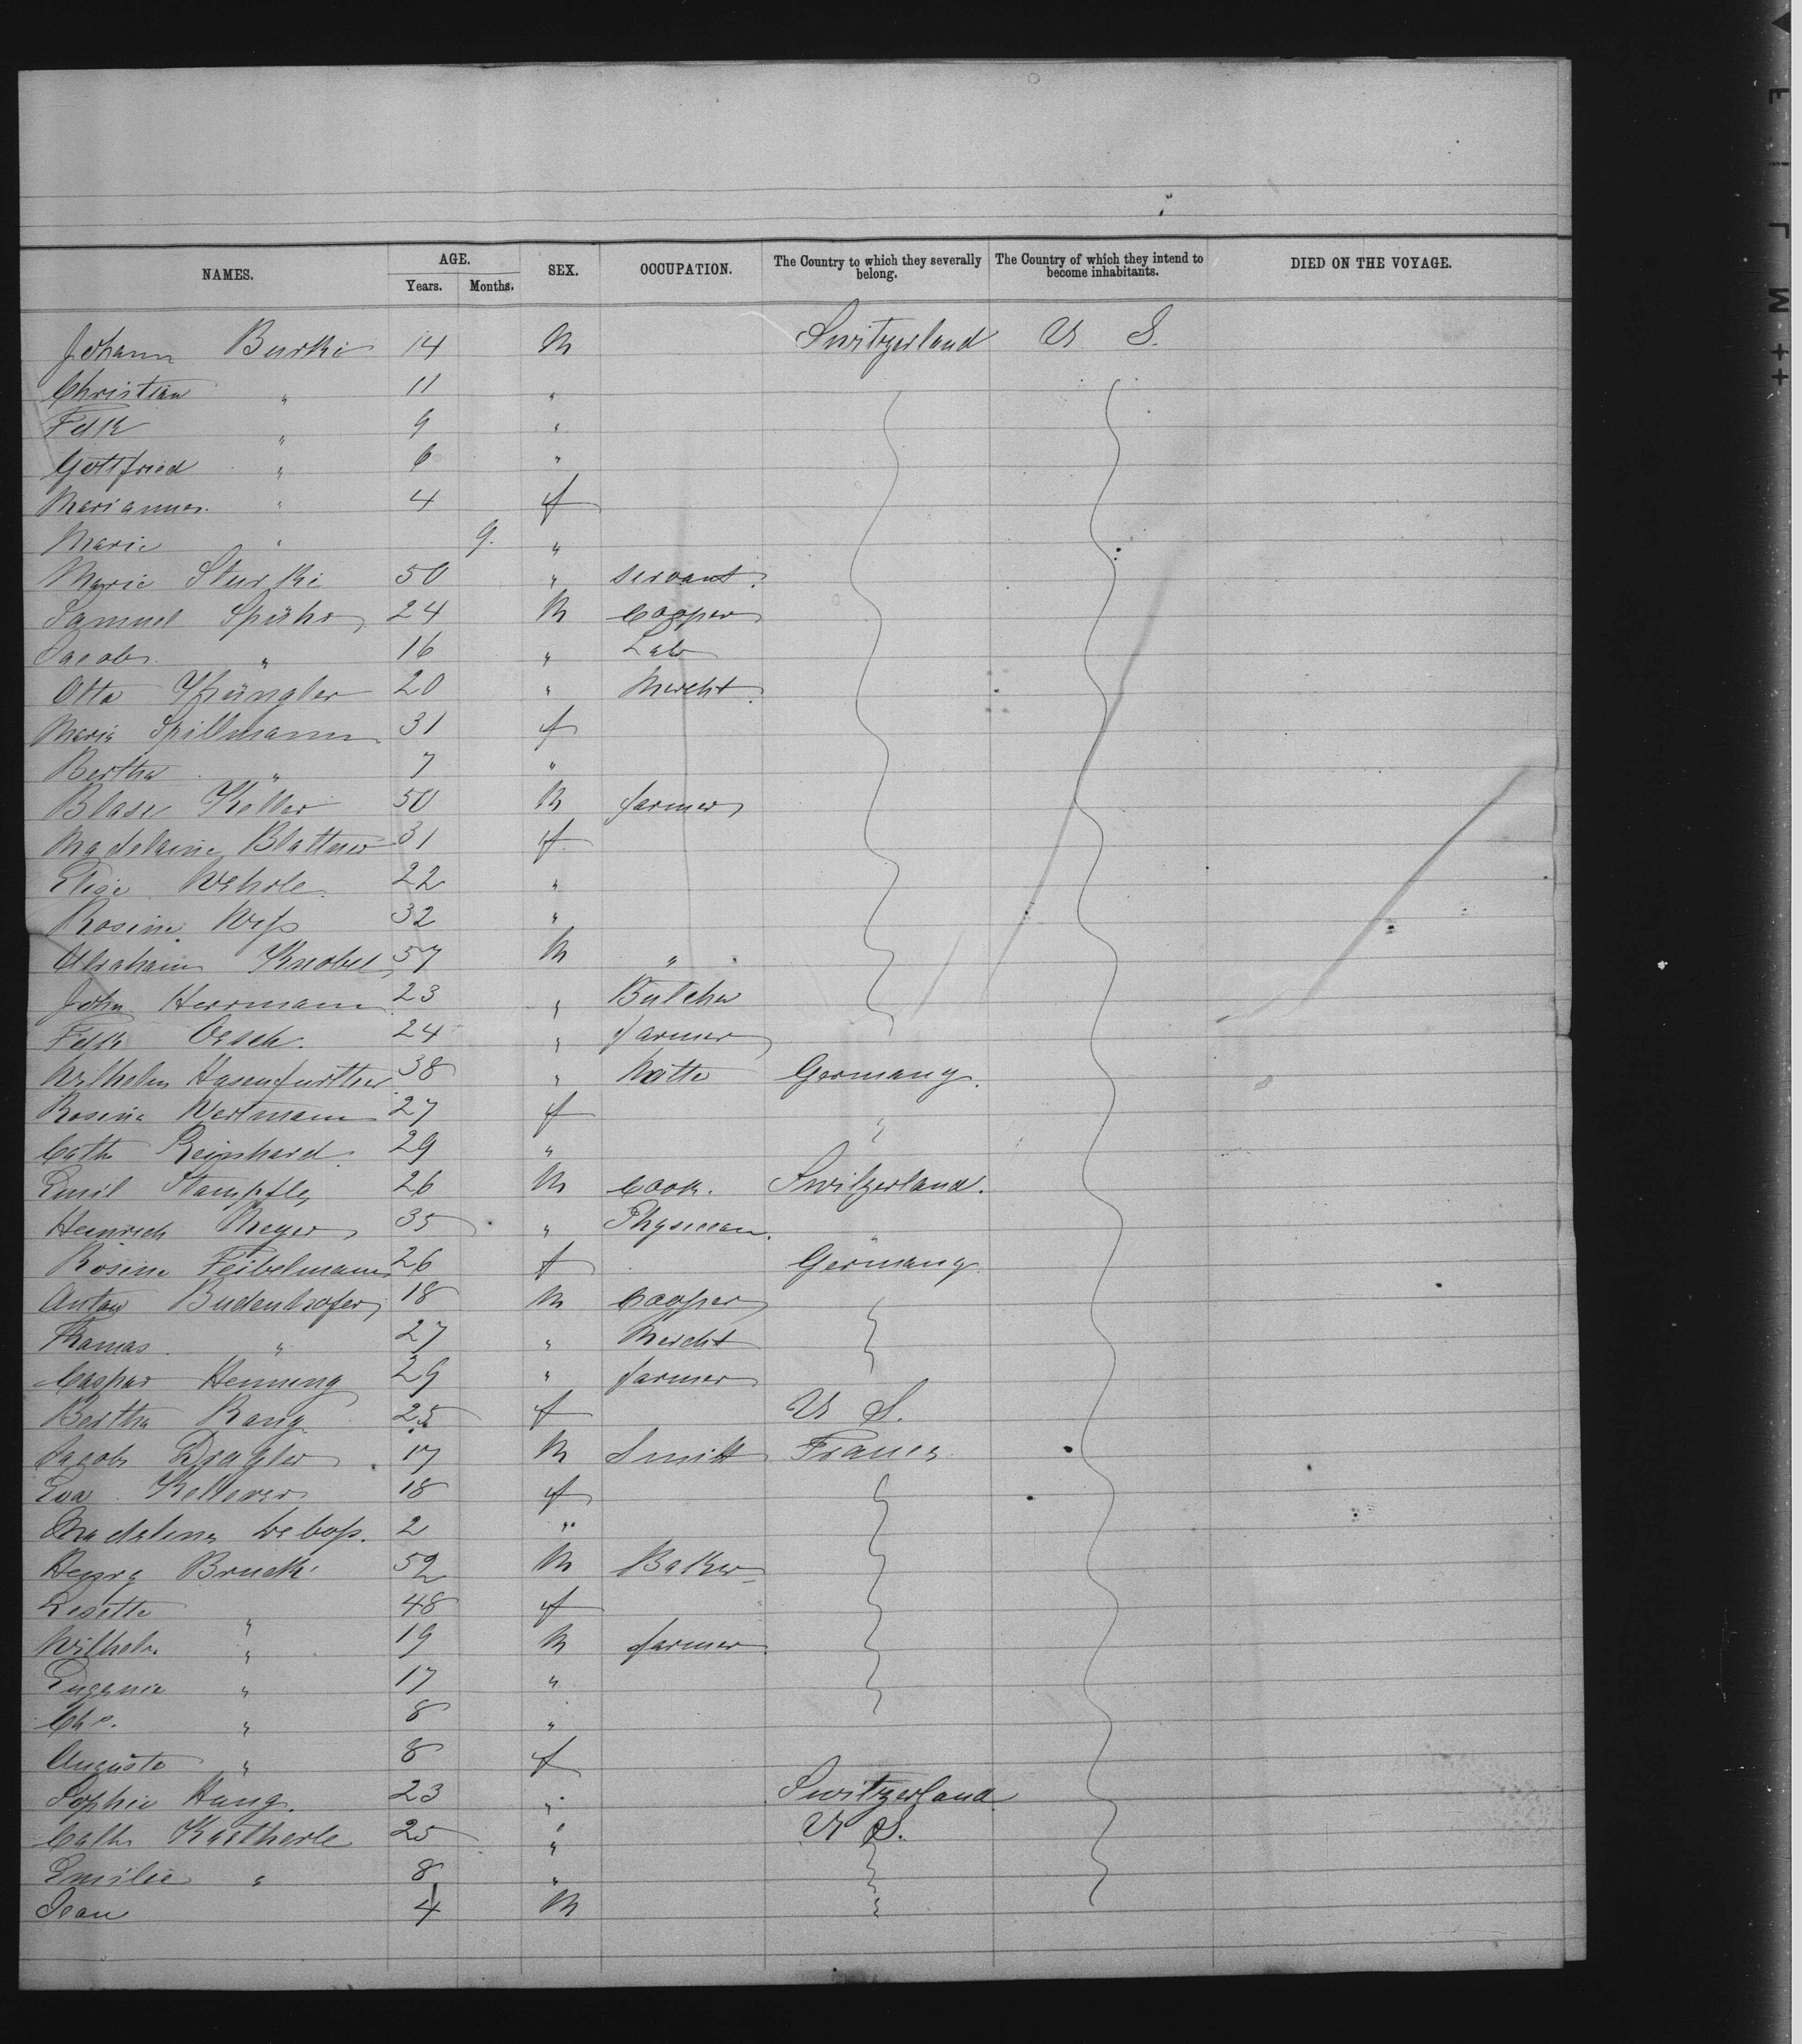 NAMES. AGE. Years. Months. SEX. OCCUPATION. The Country to which they severally belong. The Country of which they intend to become inhabitants. DIED ON THE VOYAGE.
Johann Burki 14 M Switzerland U S.
Christian " 11 "
" 9 "
Gottfried " 6 "
" 4 f
Marie " 9. "
Marie Sturki 50 " servant.
Samuel Spühr 24 M Cooper
Jacob " 16 " Lab
Otto 20 " Mercht
Maria Spillmann 31 f
Bertha " 7 "
Blase Keller 50 M farmer
Madelaine Blattner 31 f
Elise Wehrle 22 "
Rosine Wyss 32 "
Abraham Knobel 57 M "
John Herrmann 23 " Butcher
Oesch. 24 " farmer
Wilhelm Hasenfurther 38 " Germany.
Rosina Wertmann 27 f
Cath Reinhard 29 "
Emil Stampfle 26 M Cook. Switzerland.
Heinrich Meyer 35 " Physician. "
Rosine Feibelmann 26 f Germany
Anton Budenhofer 18 M Cooper
Thomas " 27 " Mercht
Caspar Henning 29 " farmer
Bertha Rang 25 f U S.
Jacob 17 M Smith France
Eva 18 f
Madalena 2 "
Henry Bruck 52 M Baker
Lisette " 48 f
Wilhelm " 19 M farmer
Eugenie " 17 "
Chs. " 8 "
Augusta " 8 f
Sophie Hung. 23 " Switzerland
Cath Kaetherle 25 " U S.
Emilie " 8 "
Jean 4 M